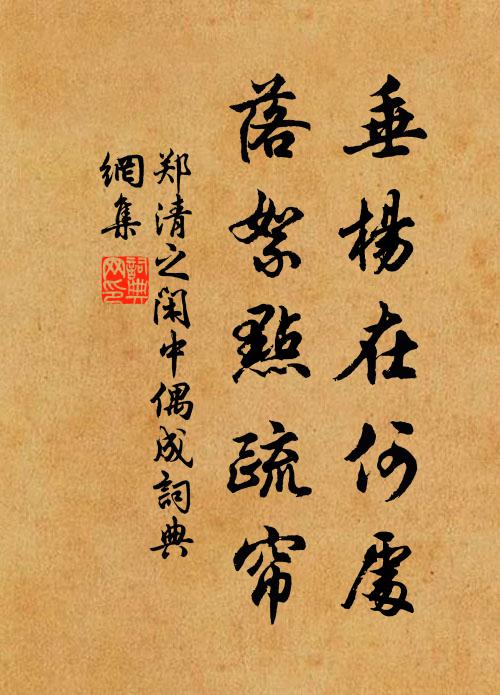 垂楊在何處
落絮點疏帘
郑清之閑中偶成詞典
網集
詞典網印